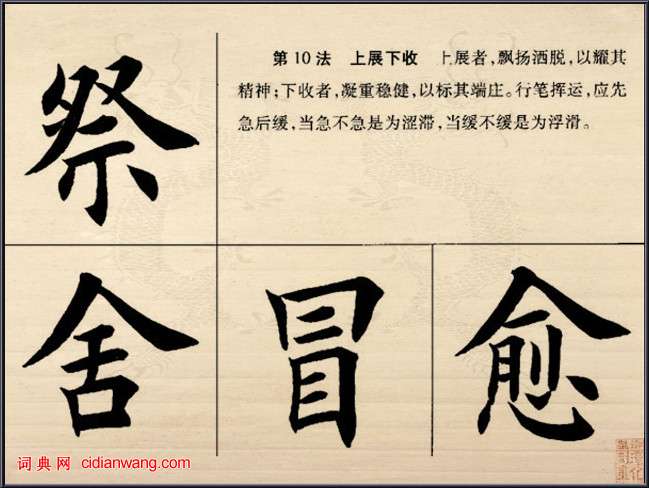 祭
第10法 上展下收 上展者,飘扬洒脱,以耀其
精神;下收者,凝重稳健,以标其端庄。行笔挥运,应先
急后缓,当急不急是为涩滞,当缓不缓是为浮滑。
舍 冒 愈
词典网 cidianwang.com